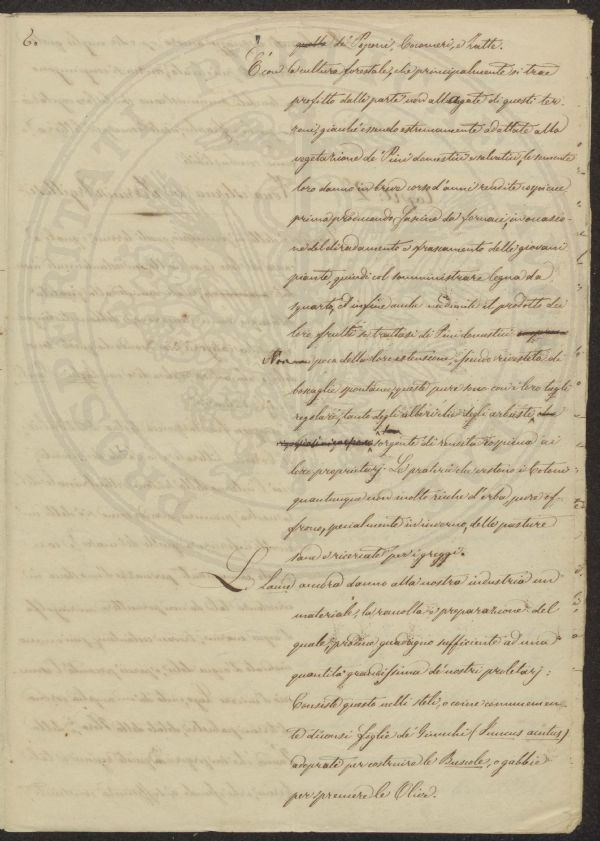 6.
di Poponi, Cocomeri, e Frutte.
È con la cultura forestale, che principalmente si trae
profitto dalle parte non allagate di questi ter-
reni, giacchè essendo estremamente adattate alla
vegetazione de' Pini domestici e selvatici, le semente
loro danno in breve corso d'anni rendite cospicue
prima producendo fascine da fornaci, in occasio-
ne del diradamento e frascamento delle giovani
piante, quindi col somministrare legna da
quarto, ed infine anche mediante il prodotto dei
loro frutti se trattasi di Pini domestici
poca della loro estensione, essendo rivestita di
boscaglie spontanee, queste pure sono con i loro tagli
regolari, tanto degli alberi che degli arbusti,
sorgente di rendita ai
loro proprietarj. Le praterie che vestono i Cotoni
quantunque non molto ricche d'erba, pure of-
frono, specialmente in inverno, delle pasture
sane e ricercate per i greggi.
Le Lame ancora danno alla nostra industria un
materiale, la raccolta e preparazione del
quale, procura guadagno sufficiente ad una
quantità grandissima de' nostri proletarj:
Consiste questo nelli steli, o come comunemen-
te diconsi foglie de' Giunchi (Juncus acutus)
adoprate per costruire le Buscole, o gabbie
per spremere le Olive.